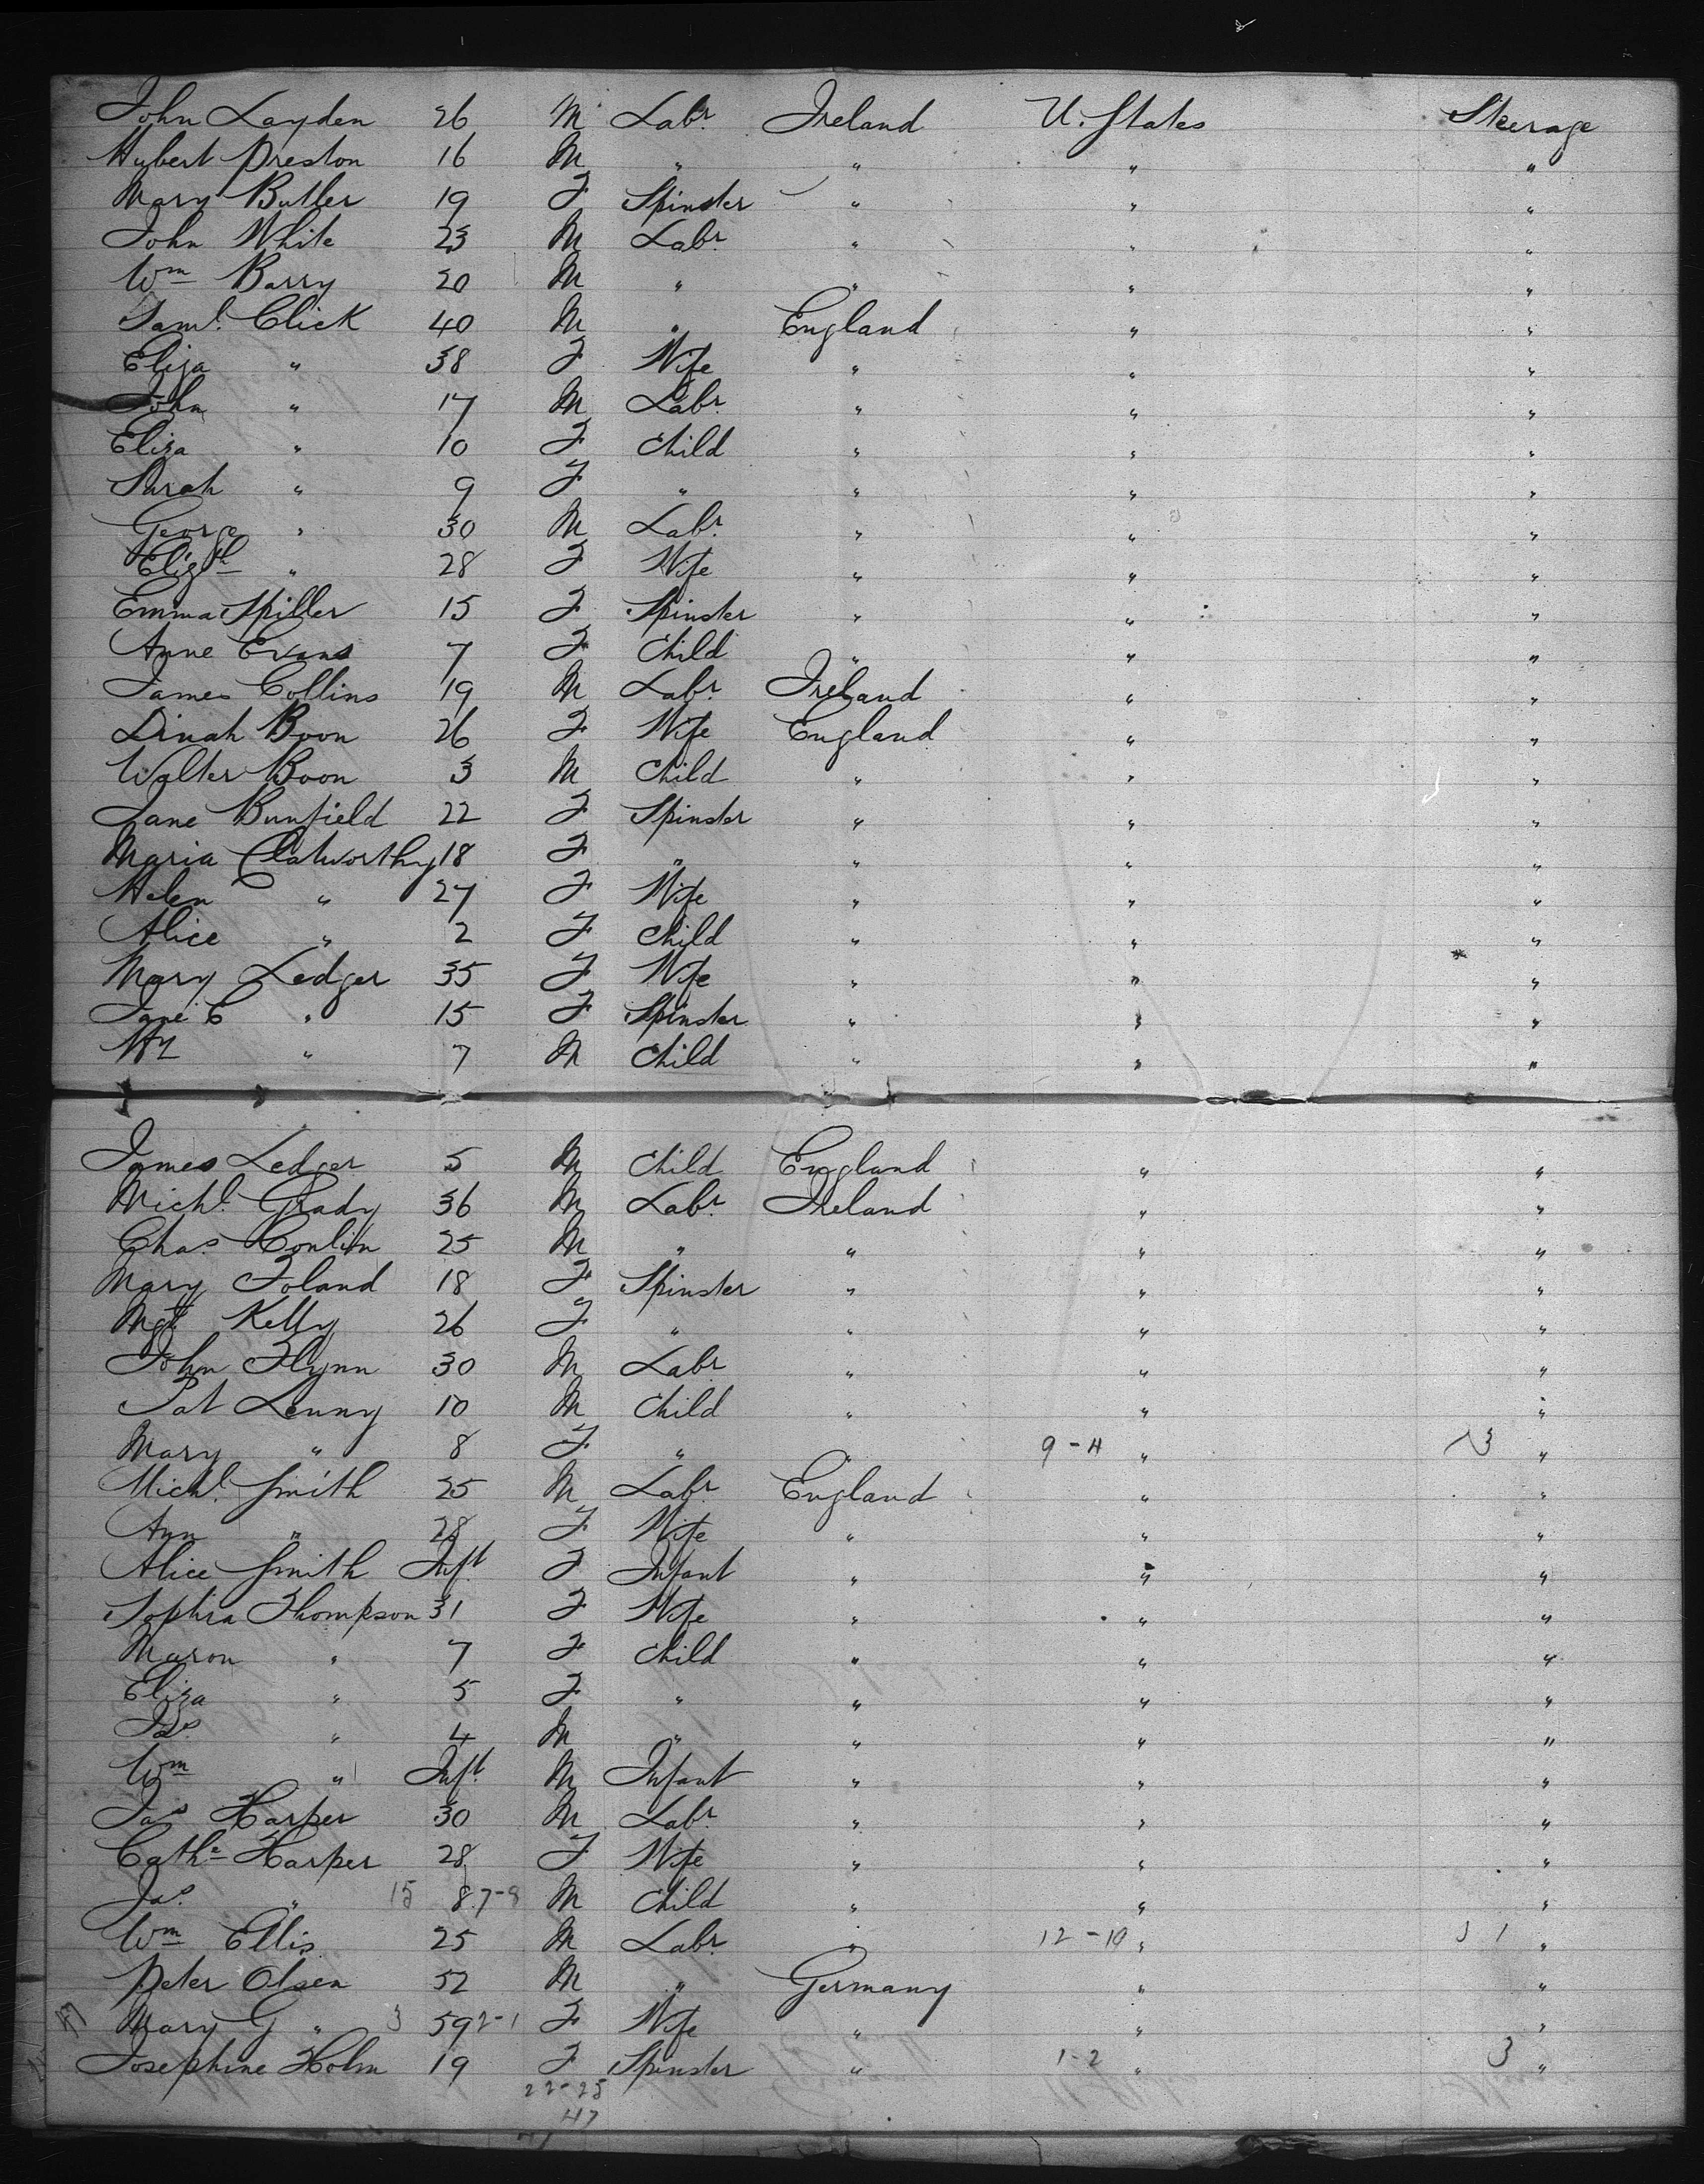 John Layden 26 M Labr. Ireland U. States Steerage
Hubert Preston 16 M " " " "
Mary Butler 19 F Spinster " " "
John White 23 M Labr. " " "
Wm Barry 20 M " " " "
Saml. Click 40 M " England " "
Eliza " 38 F Wife " " "
John " 17 M Labr. " " "
Eliza " 10 F Child " " "
Sarah " 9 F " " " "
George " 30 M Labr. " " "
Elizth " 28 F Wife " " "
Emma Spiller 15 F Spinster " " "
Anne Evans 7 F Child " " "
James Collins 19 M Labr. Ireland " "
Dinah Boon 26 F Wife England " "
Walter Boon 3 M Child " " "
Jane Bunfield 22 F Spinster " " "
Maria Clatworthy 18 F " " " "
Helen " 27 F Wife " " "
Alice " 2 F Child " " "
Mary Ledger 35 F Wife " " "
Jane C " 15 F Spinster " " "
" 7 M Child " " "
James Ledger 5 M Child England " "
Michl. Grady 36 M Labr. Ireland " "
Chas. Conlin 25 M " " " "
Mary Foland 18 F Spinster " " "
Mgt Kelly 26 F " " " "
John Flynn 30 M Labr " " "
Pat Lenny 10 M Child " " "
Mary " 8 F " " 9-4 " 3 "
Michl. Smith 25 M Labr. England " "
Ann " 28 F Wife " " "
Alice Smith Inft. F Infant " " "
Sophia Thompson 31 F Wife " " "
Maron " 7 F Child " " "
Eliza " 5 F " " " "
Jas " 4 M " " " "
Wm " Inft. M Infant " " "
Jas Harper 30 M Labr. " " "
Cathe Harper 28 F Wife " " "
Jas. " 15 8 7-8 M Child " " "
Wm Ellis 25 M Labr. " 12-10 " 3 1 "
Peter Olsen 52 M " Germany " "
Mary G " 3 59 2-1 F Wife " " "
Josephine Holm 19 F Spinster " 1-2 " 3 "
22-25
47